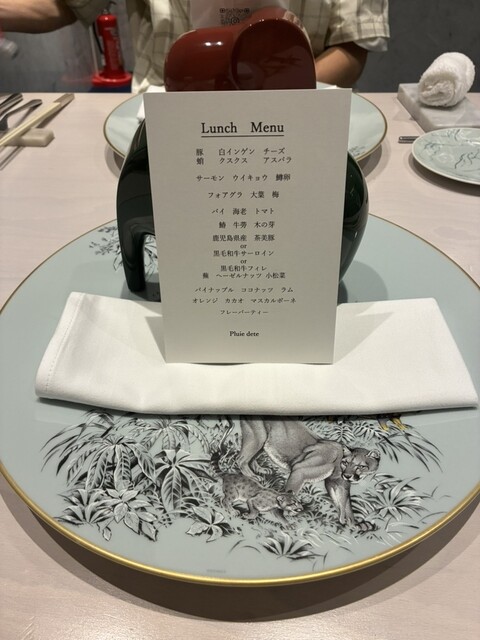 Lunch Menu
豚 白インゲン チーズ
蛸 クスクス アスパラ
サーモン ウイキョウ 鱒卵
フォアグラ 大葉 梅
パイ 海老 トマト
鮪 牛蒡 木の芽
鹿児島県産 茶美豚
or
黒毛和牛サーロイン
or
黒毛和牛フィレ
ヘーゼルナッツ 小松菜
パイナップル ココナッツ ラム
オレンジ カカオ マスカルポーネ
フレーバーティー
Pluie dete